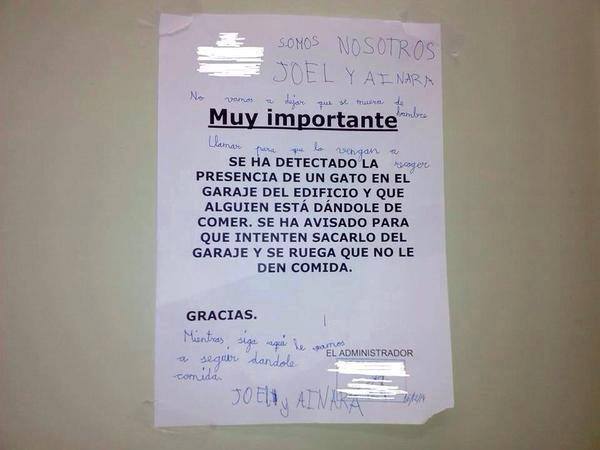 SOMOS NOSOTROS
JOEL Y AINARA
No vamos a dejar que se muera de hambre
Muy importante
Llamar para que lo vengan a recoger
SE HA DETECTADO LA
PRESENCIA DE UN GATO EN EL
GARAJE DEL EDIFICIO Y QUE
ALGUIEN ESTÁ DÁNDOLE DE
COMER. SE HA AVISADO PARA
QUE INTENTEN SACARLO DEL
GARAJE Y SE RUEGA QUE NO LE
DEN COMIDA.
GRACIAS.
Mientras siga aquí le vamos
a seguir dandole
comida.
EL ADMINISTRADOR
JOEL y AINARA